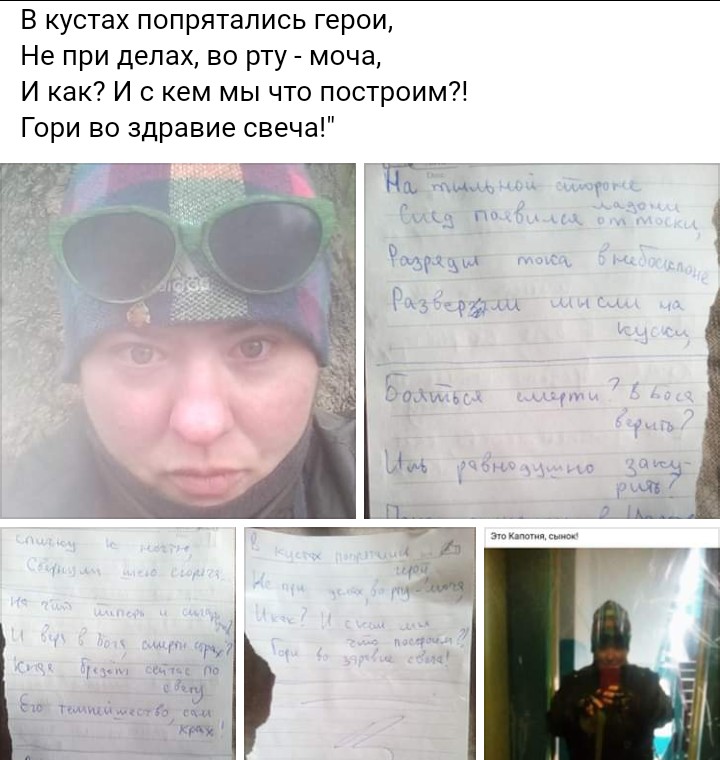 В кустах попрятались герои,
Не при делах, во рту - моча,
И как? И с кем мы что построим?!
Гори во здравие свеча!"
На тыльной стороне
ладони
След появился от тоски,
Разряды тока в небосклоне
Разверзли мысли на
куски,
Бояться смерти? В Бога
верить?
Иль равнодушно заку-
рить?
спичку к ногтю,
Свернули шею сгоряча...
На что теперь и
И веру в Бога, смерти страх?
Когда бредёт сейчас по
свету
Его темнейшество, сам
крах!
В кустах попрятались
герои
Не при делах, во рту - моча,
И как? И с кем мы
что построим?!
Гори во здравие свеча!
Это Капотня, сынок!